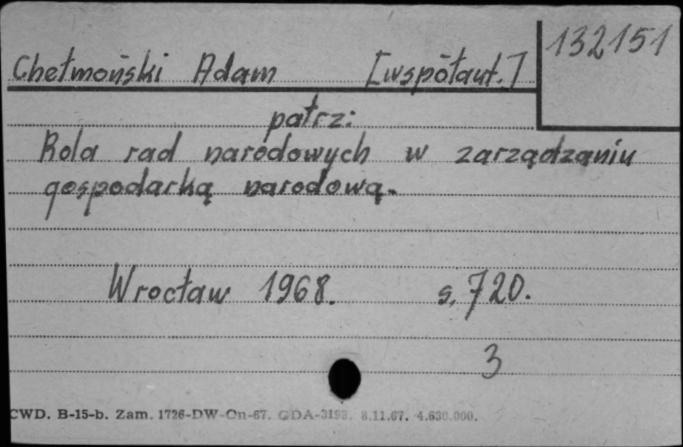 132151
Chełmoński Adam [współaut.]
patrz:
Rola rad narodowych w zarządzaniu
gospodarką narodową.
Wrocław 1968. s. 720.
3
CWD. B-15-b. Zam. 1726-DW-On-67. GDA-3193. 8.11.67. 4.630.000.